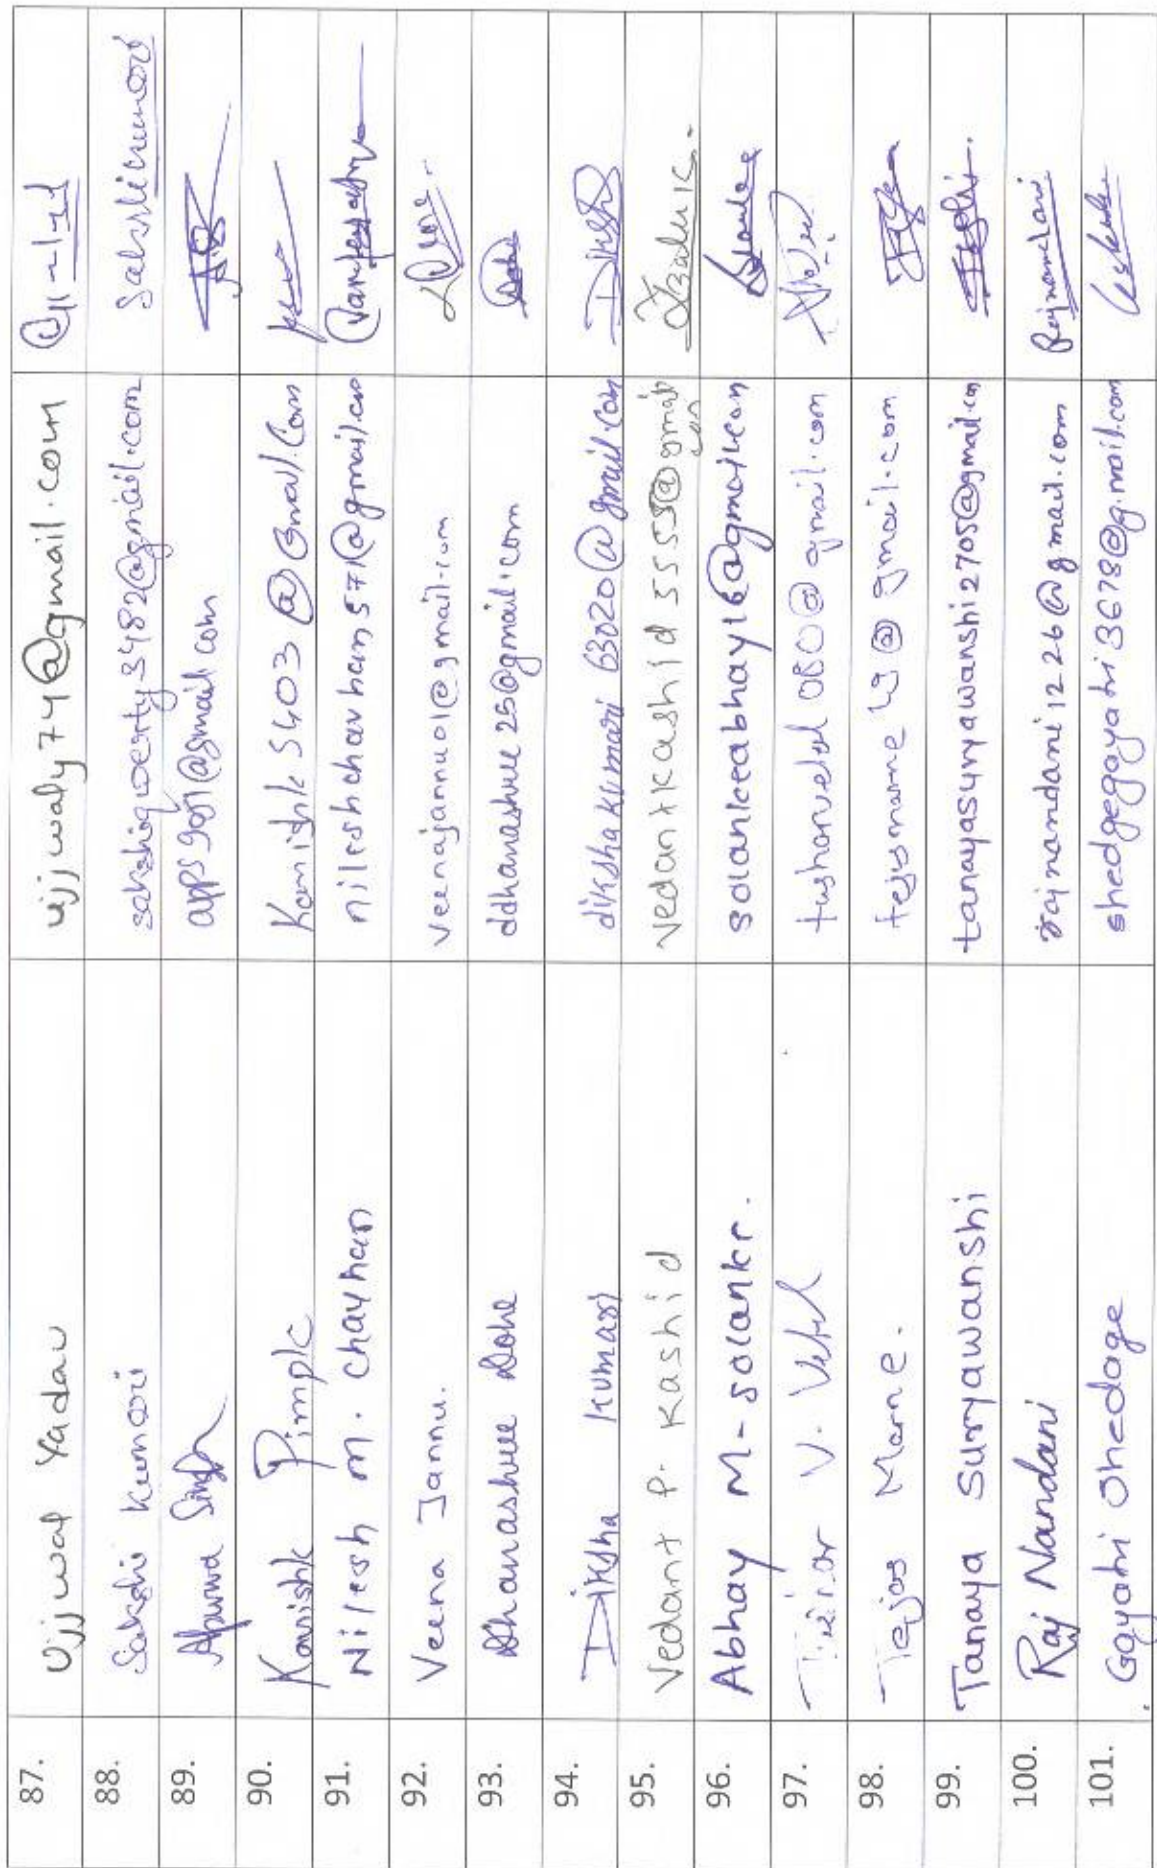 87. Ujjwal Yadav ujjwaly74@gmail.com
88. Sakshi Kumari sakshiqwerty3482@gmail.com Sakshi Kumari
89. Apurwa Singh apps9051@gmail.com
90. Kanishk Pimple Kanishk5403@Gmail.Com
91. Nilesh M. Chavhan nileshchavhan571@gmail.com
92. Veena Jannu. veenajannu01@gmail.com
93. Dhanashree Dohe ddhanashree25@gmail.com
94. Diksha Kumari dikshakumari63020@gmail.com
95. Vedant P. Kashid vedantkashid5555@gmail.com
96. Abhay M-solanke. solankeabhay16@gmail.com
97. V. tusharvetal080@gmail.com
98. Tejas Marne. tejasmarne49@gmail.com
99. Tanaya Suryawanshi tanayasuryawanshi2705@gmail.com
100. Raj Nandani rajnandani1226@gmail.com Rajnandani
101. Gayatri Shedage shedgegayatri3678@gmail.com